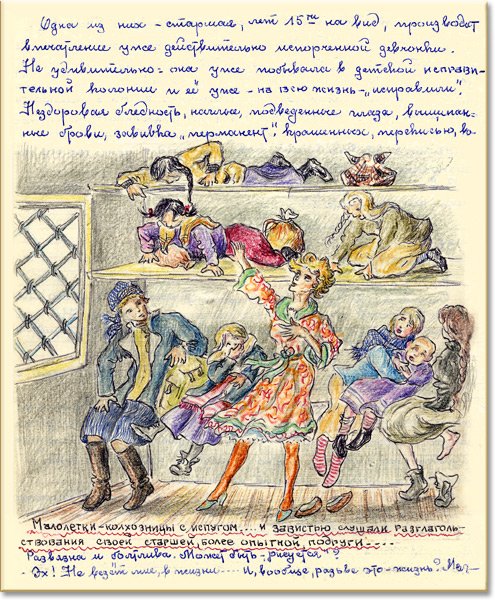 Одна из них – старшая, лет 15ти на вид, производит
впечатление уже действительно испорченной девчонки.
Не удивительно: она уже побывала в детской исправи-
тельной колонии и её уже – на всю жизнь – „исправили".
Нездоровая бледность, наглые, подведенные глаза, выщипан-
ные брови, завивка „перманент", крашенных, перекисью, во-
Малолетки-колхозницы с испугом.... и завистью слушали разглаголь-
ствования своей старшей, более опытной, подруги.....
Развязна и болтлива. Может быть – „рисуется"?
Эх! Не везёт мне, в жизни.... И, вообще, разве это – жизнь? Мал-